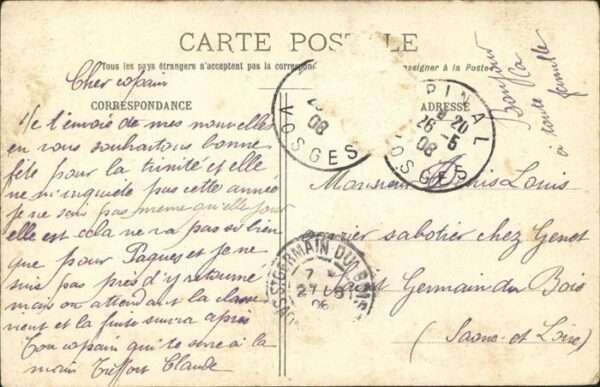 CARTE POSTALE
Tous les pays étrangers n'acceptent pas la correspon
nseigner à la Poste
Cher copain
CORRESPONDANCE
ADRESSE
Je t'envoie de mes nouvelles
en vous souhaitons bonne
fête pour la trinité et elle
ne m'inquiete pas cette année
je ne sais pas même qu'elle jour
elle est cela ne va pas si bien
que pour Paques et je ne
suis pas près d'y retourné
mais on attendant la classe
vient et la suite suivra après
Ton copain qui te serre à la
main Treffort Claude
Bonjour
à toute
famille
08
VOSGES
PINAL
20
26-5
08
OSGES
Monsieur Louis
sabotier chez Genet
St GERMAIN DU BOIS
7
27
08
Germain du Bois
(Saone-et Loire)